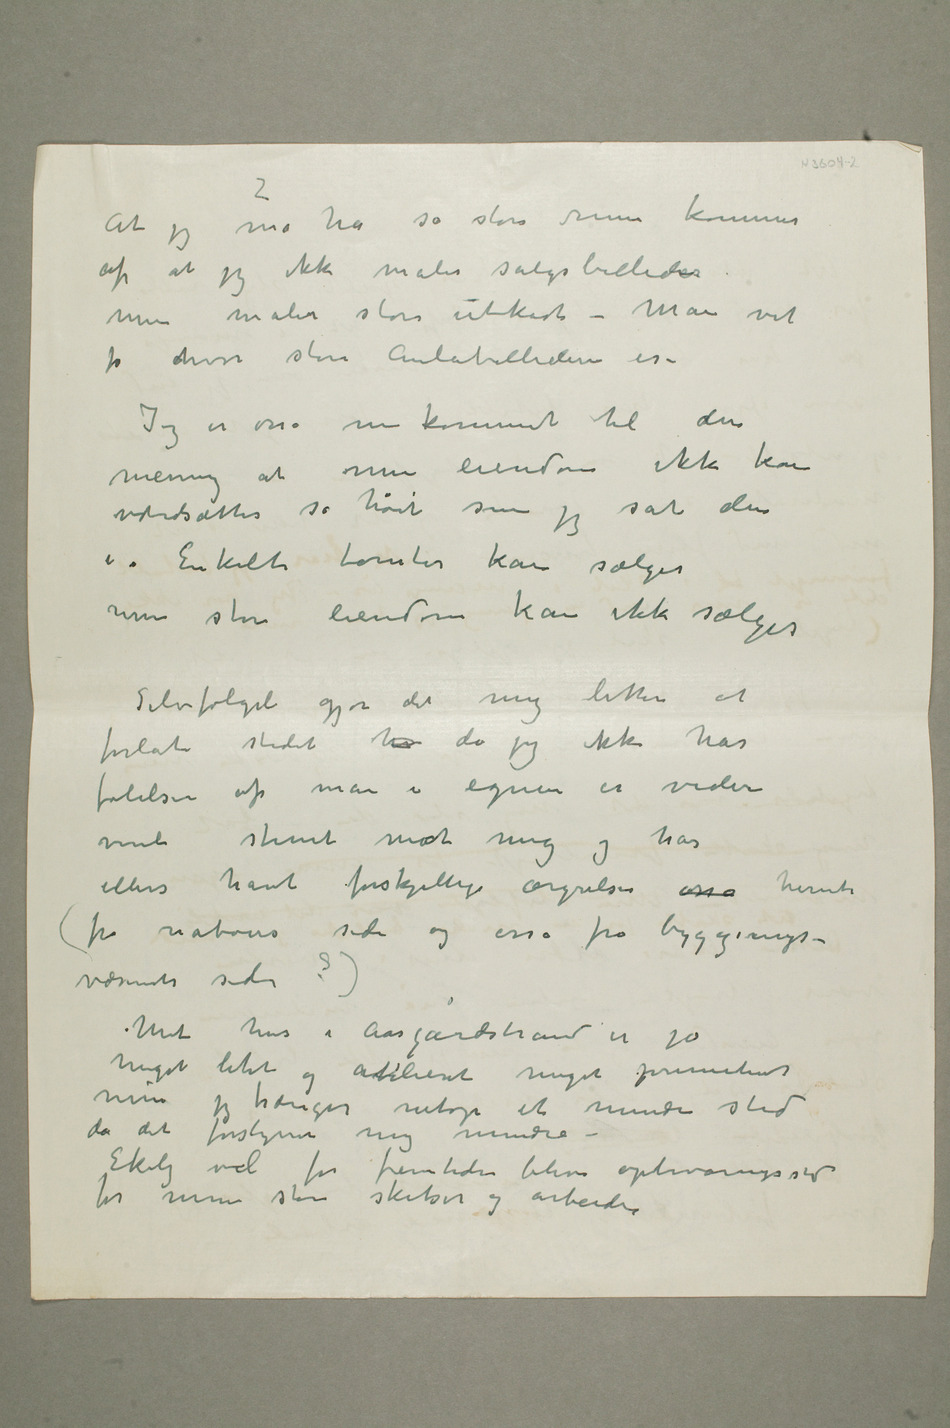 N 3604-2
2
At jeg må ha så store rum kommer
af at jeg ikke maler salgsbilleder
men maler store utkast – Man vet
jo hvor store Aulabillederne er –
Jeg er osså nu kommet til den
mening at min eiendom ikke kan
værdsættes så høit som jeg sat den
i. Enkelte tomter kan sælges
men store eiendom kan ikke sælges
Selvfølgeli gjør det mig lettere at
forlate stedet da jeg ikke har
følelsen af man i egnen er videre
venli stemt mot mig og har
ellers havt forskjellige ærgrelser osså herute
(fra naboers side og osså fra bygnings-
væsenets side ?)
Mit hus i Aasgårdstrand er jo
meget litet og atelieret meget primitivt
men jeg trænger netop et mindre sted
da det forstyrrer mig mindre –
Ekely vil for fremtiden blive opbevaringssted
for mine store skitser og arbeider